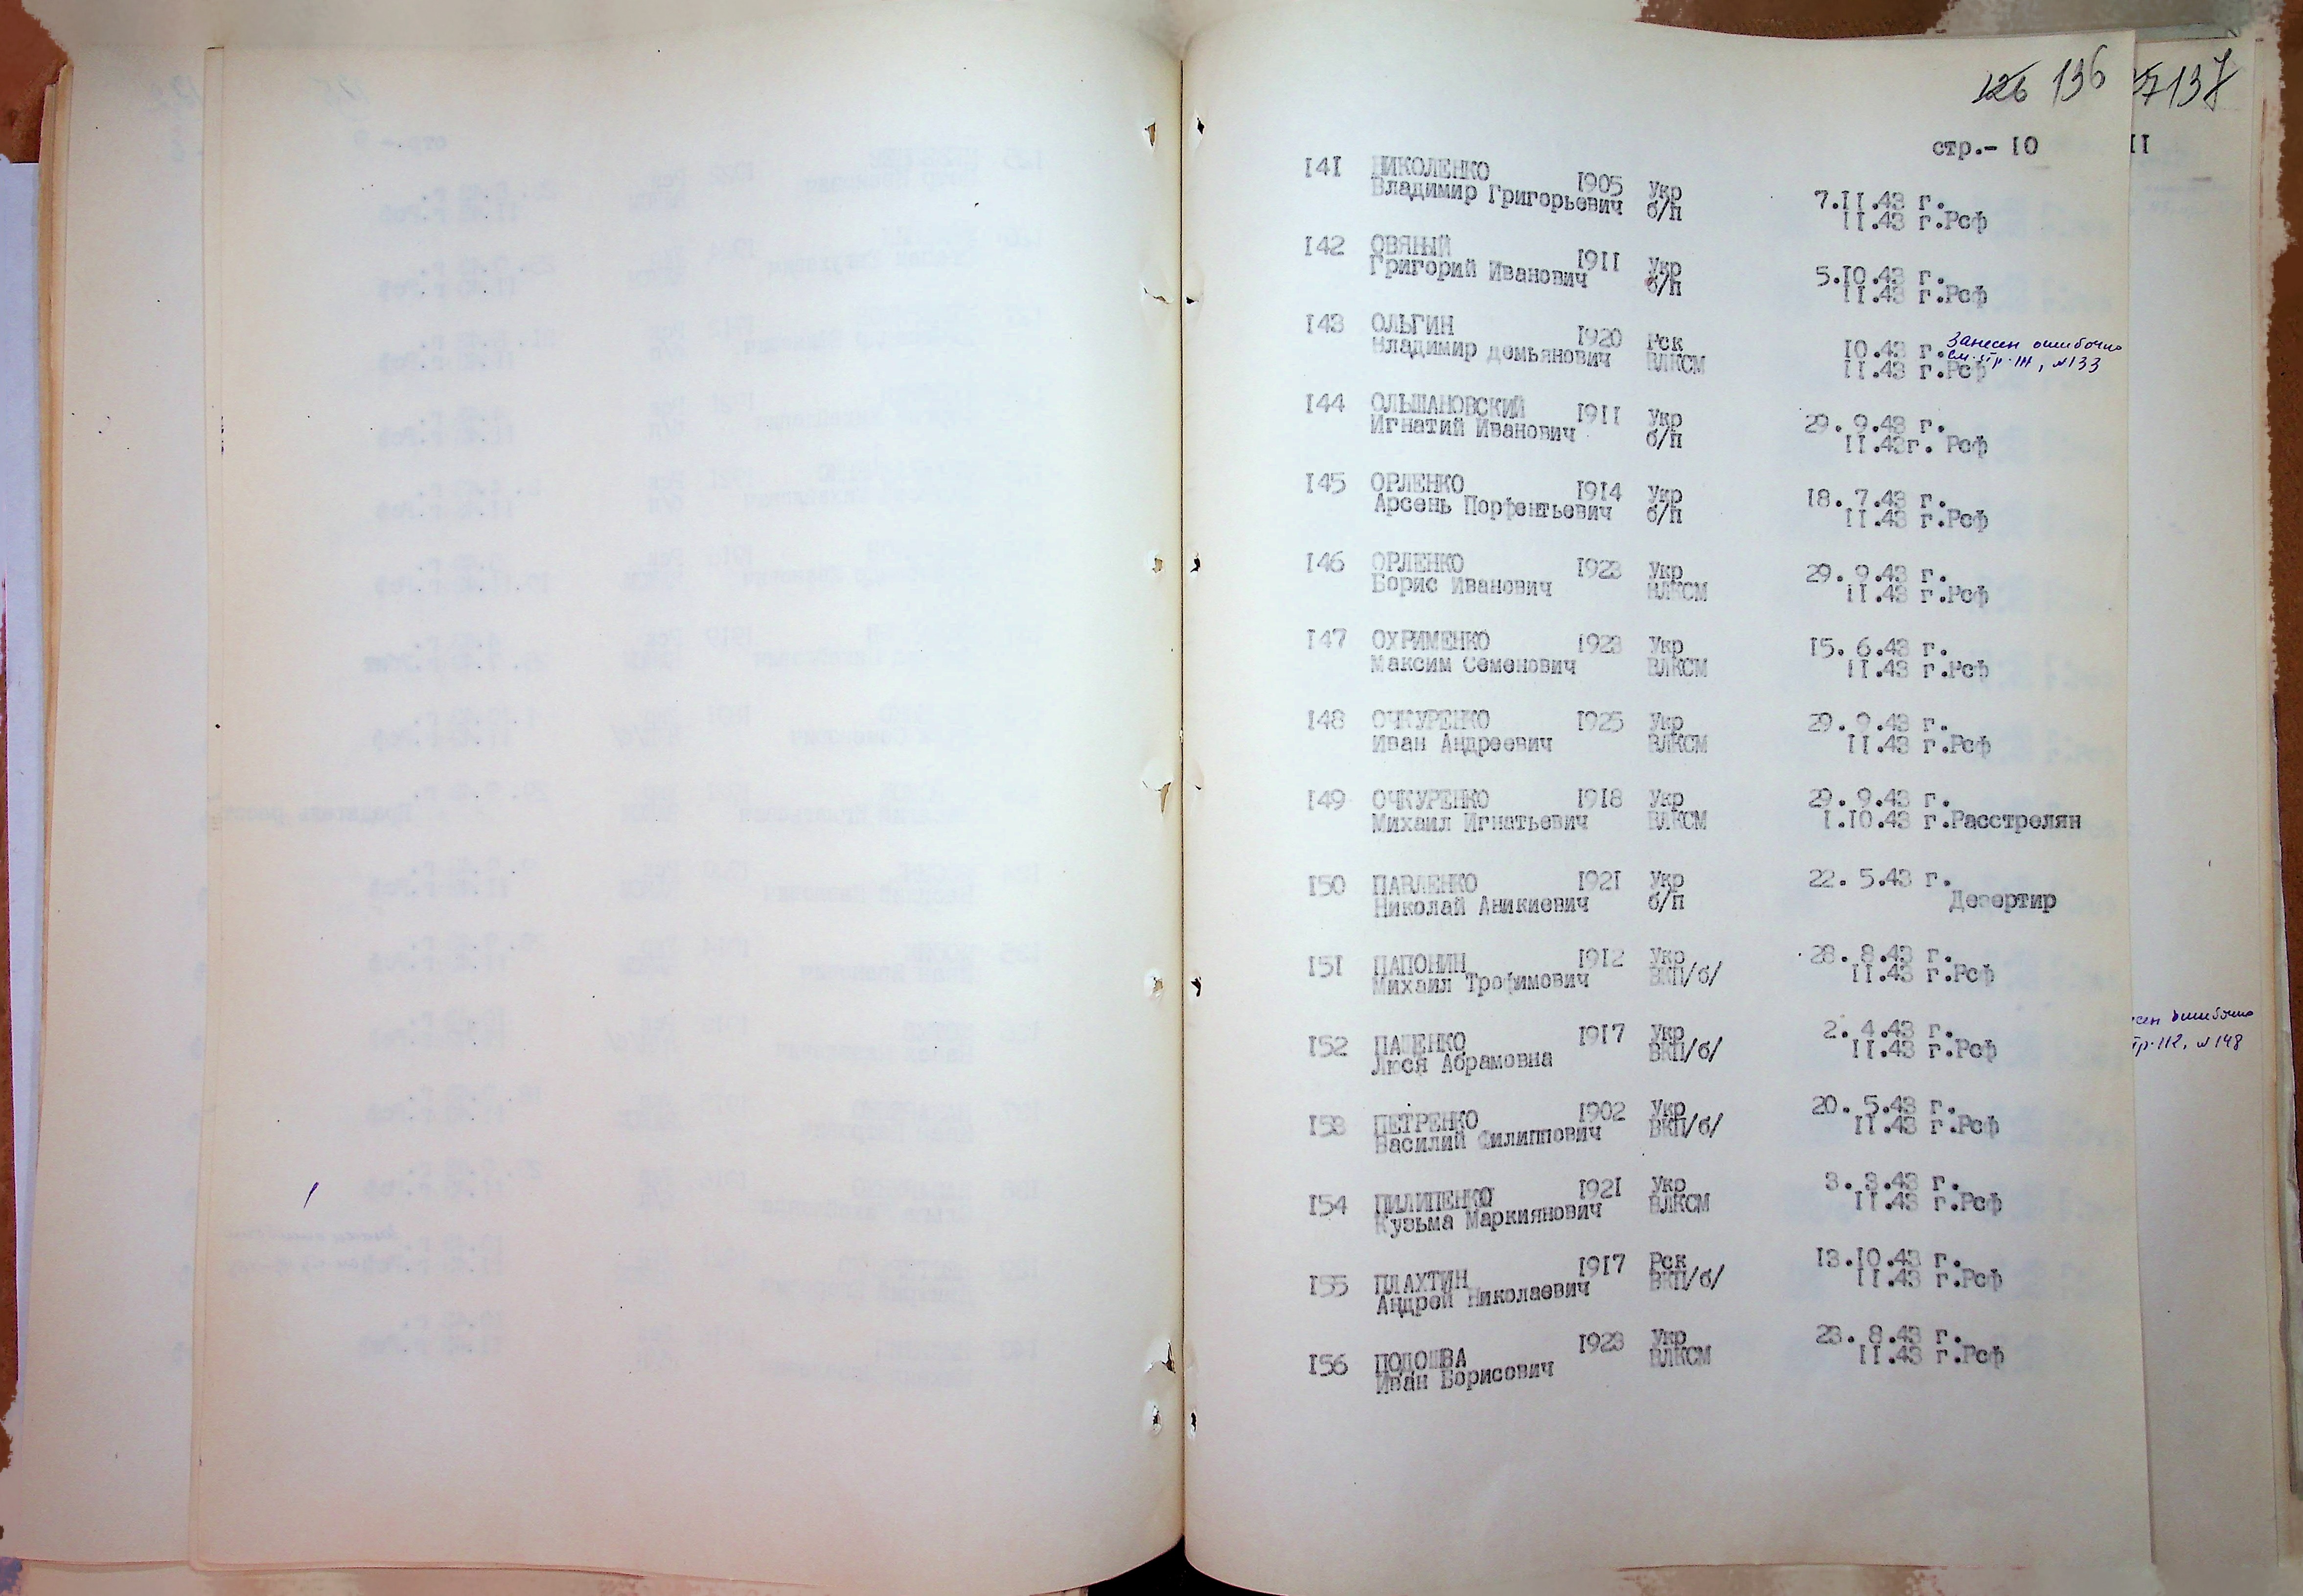 126 136
137
стр.- 10
11
141 НИКОЛЕНКО 1905 Укр 7.11.43 г.
Владимир Григорьевич б/п 11.43 г.Рсф
142 ОВЯНЫЙ 1911 Укр 5.10.43 г.
Григорий Иванович б/п 11.43 г.Рсф
143 ОЛЬГИН 1920 Рск 10.43 г. Занесен ошибочно
Владимир Демьянович ВЛКСМ 11.43 г.Рсф см. стр. 111, №133
144 ОЛЬШАНОВСКИЙ 1911 Укр 29. 9.43 г.
Игнатий Иванович б/п 11.43г. Рсф
145 ОРЛЕНКО 1914 Укр 18. 7.43 г.
Арсень Порфентьевич б/п 11.43 г.Рсф
146 ОРЛЕНКО 1923 Укр 29. 9.43 г.
Борис Иванович ВЛКСМ 11.43 г.Рсф
147 ОХРИМЕНКО 1923 Укр 15. 6.43 г.
Максим Семенович ВЛКСМ 11.43 г.Рсф
148 ОЧКУРЕНКО 1925 Укр 29. 9.43 г.
Иван Андреевич ВЛКСМ 11.43 г.Рсф
149 ОЧКУРЕНКО 1918 Укр 29. 9.43 г.
Михаил Игнатьевич ВЛКСМ 1.10.43 г.Расстрелян
150 ПАВЛЕНКО 1921 Укр 22. 5.43 г.
Николай Аникиевич б/п Дезертир
151 ПАПОНИН 1912 Укр 28. 8.43 г.
Михаил Трофимович ВКП/б/ 11.43 г.Рсф
152 ПАЩЕНКО 1917 Укр 2. 4.43 г.
Люся Абрамовна ВКП/б/ 11.43 г.Рсф
153 ПЕТРЕНКО 1902 Укр 20. 5.43 г.
Василий Филиппович ВКП/б/ 11.43 г.Рсф
154 ПИЛИПЕНКО 1921 Укр 3. 3.43 г.
Кузьма Маркиянович ВЛКСМ 11.43 г.Рсф
155 ПЛАХТИН 1917 Рск 13.10.43 г.
Андрей Николаевич ВКП/б/ 11.43 г.Рсф
156 ПОДОШВА 1923 Укр 23. 8.43 г.
Иван Борисович ВЛКСМ 11.43 г.Рсф
сен ошибочно
тр. 112, №148